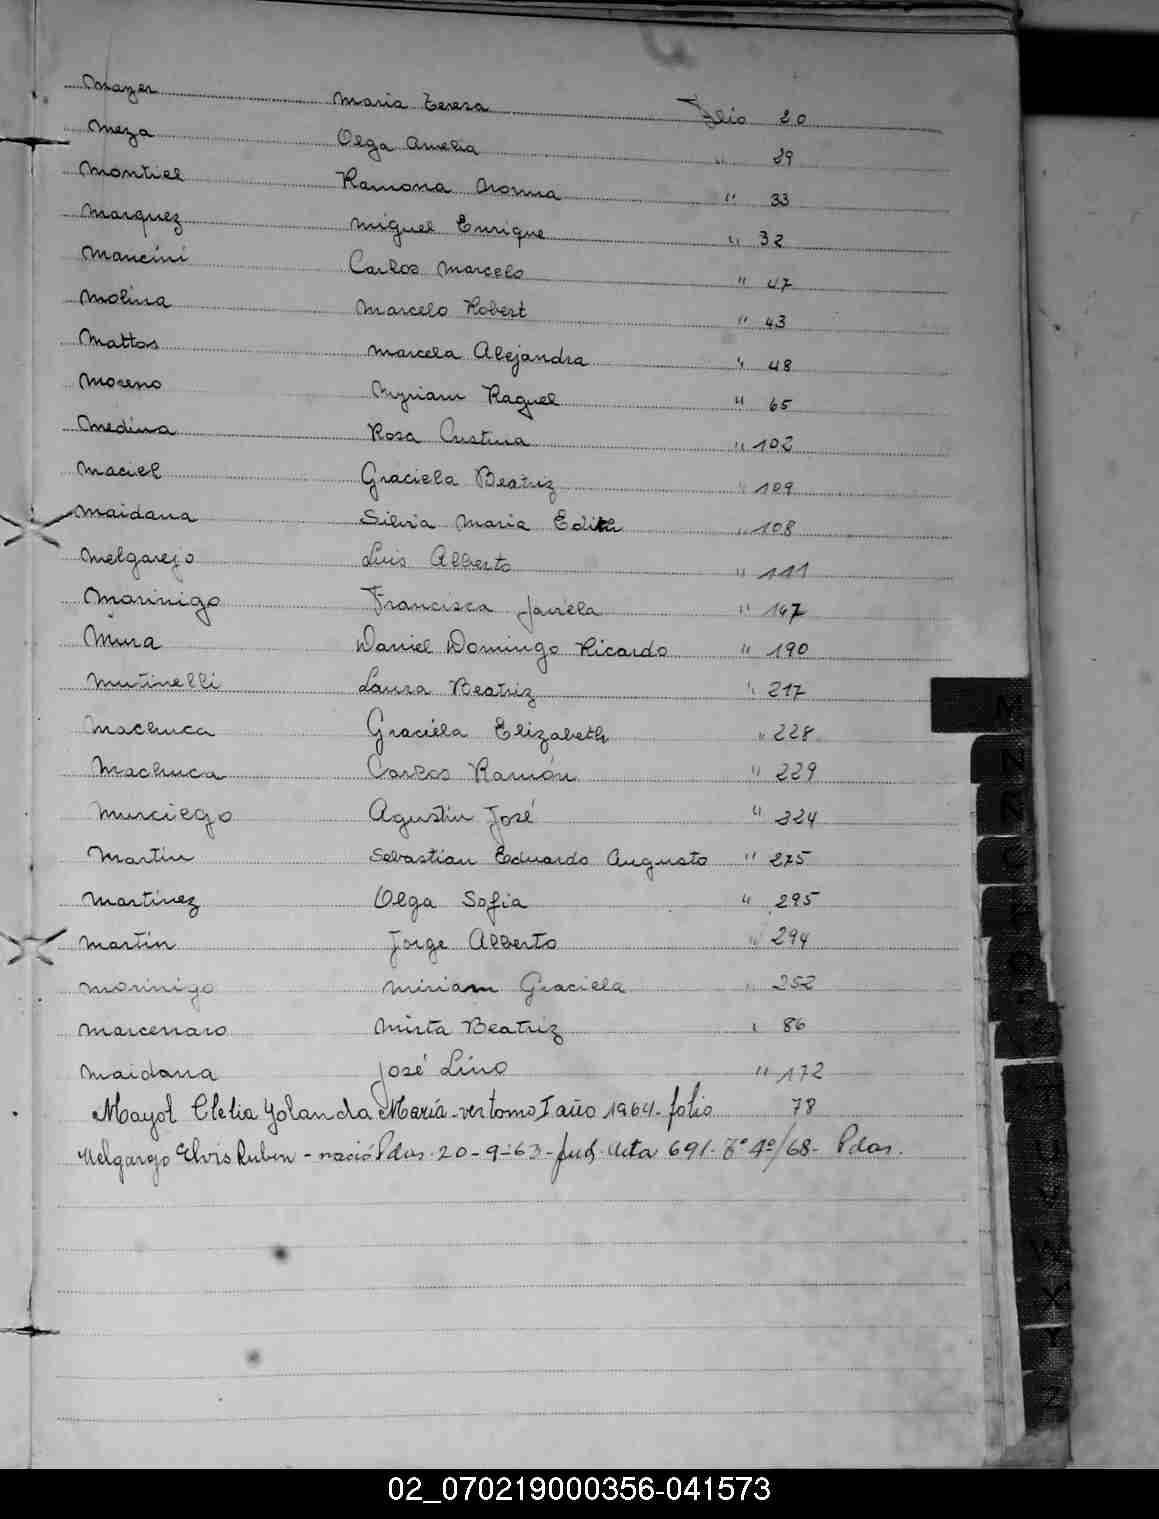 Mazer Maria Teresa Folio 20
Meza Olga Amelia " 29
Montiel Ramona Norma " 33
Marquez Miguel Enrique " 32
Mancini Carlos Marcelo " 47
Molina Marcelo Robert " 43
Mattos Marcela Alejandra " 48
Moreno Myriam Raquel " 65
Medina Rosa Cristina " 102
Maciel Graciela Beatriz " 109
Maidana Silvia Maria Edith " 108
Melgarejo Luis Alberto " 111
Marinigo Francisca " 147
Mura Daniel Domingo Ricardo " 190
Mutinelli Laura Beatriz " 217
Machuca Graciela Elizabeth " 228
Machuca Carlos Ramón " 229
Murciego Agustin José " 324
Martin Sebastian Eduardo Augusto " 275
Martinez Olga Sofia " 295
Martin Jorge Alberto " 294
Morinigo Miriam Graciela " 252
Marcenaro Mirta Beatriz " 86
Maidana José Lino " 172
Mayol Clelia Yolanda María - ver tomo I año 1964 - folio 78
Melgarejo Elvis Ruben - nació Pdas. 20-9-63 - Acta 691 - Tº 4º/68 - Pdas.
M
N
Ñ
O
W
X
Y
Z
02_070219000356-041573